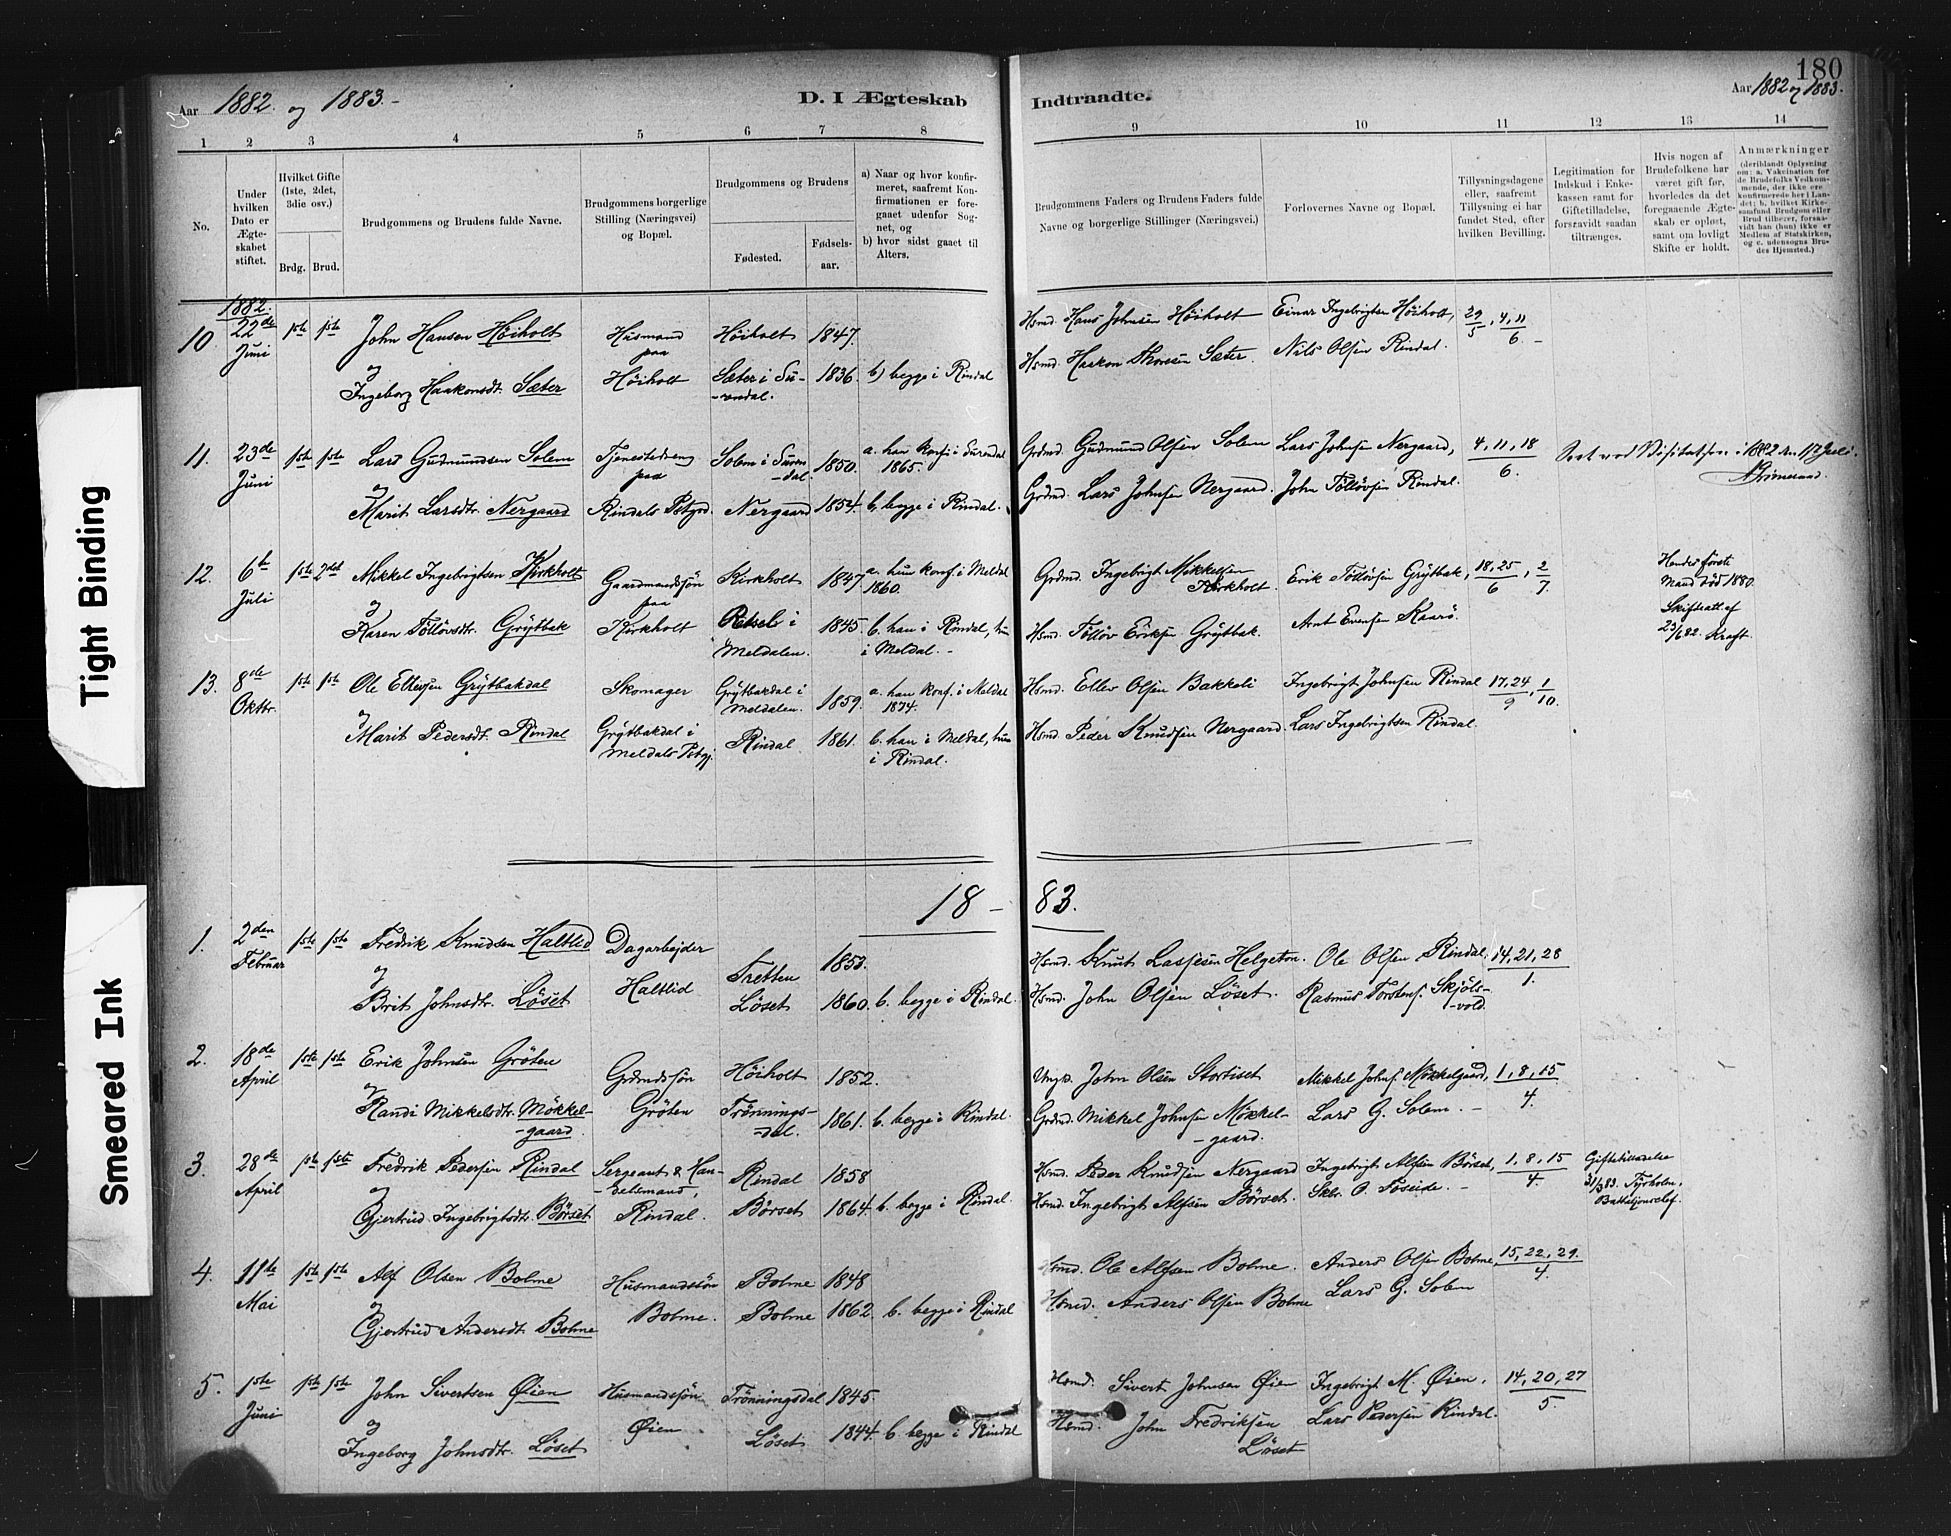 180
Aar 1882 og 1883.-
D. I Ægteskab Indtraadte.
Aar 1882 og 1883.
1 2 3 4 5 6 7 8 9 10 11 12 13 14
No.
Under hvilken Dato er Ægteskabet stiftet.
Hvilket Gifte (1ste, 2det, 3die osv.)
Brdg. Brud.
Brudgommens og Brudens fulde Navne.
Brudgommens borgerlige Stilling (Næringsvei) og Bopæl.
Brudgommens og Brudens
Fødested.
Fødselsaar.
a) Naar og hvor konfirmeret, saafremt Konfirmationen er foregaaet udenfor Sognet, og
b) hvor sidst gaaet til Alters.
Brudgommens Faders og Brudens Faders fulde Navne og borgerlige Stillinger (Næringsvei).
Forlovernes Navne og Bopæl.
Tillysningsdagene eller, saafremt Tillysning ei har fundet Sted, efter hvilken Bevilling.
Legitimation for Indskud i Enkekassen samt for Giftetilladelse, forsaavidt saadan tiltrænges.
Hvis nogen af Brudefolkene har været gift før, hvorledes da det foregaaende Ægteskab er opløst, samt om lovligt Skifte er holdt.
Anmærkninger (deriblandt Oplysning om: a. Vakcination for de Brudefolks Vedkommende, der ikke ere konfirmerede her i Landet; b. hvilket Kirkesamfund Brudgom eller Brud tilhører, forsaavidt han (hun) ikke er Medlem af Statskirken, og c. udensogns Brudes Hjemsted.)
1882.
10 22de Juni 1ste 1ste John Hansen Höiholt Husmand paa Höiholt Höiholt 1847. Hsmd. Hans Johnsen Höiholt Einar Ingebrigtsen Höiholt, 29/5, 4, 11/6.-
og Ingeborg Haakonsdt. Sæter Sæter i Surendal. 1836. b) begge i Rindal Hsmd. Haakon Thoresen Sæter. Nils Olsen Rindal.
11. 23de Juni 1ste 1ste Lars Gudmundsen Solem Tjenestedreng paa Solem i Surendal 1850. a. han konf. i Surendal 1865. Grdmd. Gudmund Olsen Solem Lars Johnsen Nergaard, 4, 11, 18/6.
og Marit Larsdtr. Nergaard Rindals Pstgrd. Nergaard 1854. b. begge i Rindal. Grdmd. Lars Johnsen Nergaard. John Töllövsen Rindal.
Seet ved Visitatsen i 1882 den 17 Juli.
12. 6te Juli 1ste 2det Mikkel Ingebrigtsen Kirkholt Gaardmandssön paa Kirkholt Kirkholt 1847 a. hun konf. i Meldal 1860. Grdmd. Ingebrigt Mikkelsen Kirkholt. Erik Töllövsen Grÿtbak, 18, 25/6, 2/7.
Hendes förste Mand död 1880. Skifteatt af 23/6 82. Kraft.
og Karen Töllövsdtr. Grÿtbak i Meldalen. 1845. b. han i Rindal, hun i Meldal.- Hsmd. Töllöv Eriksen Grÿtbak. Arnt Evensen Skaarö.
13. 8de Oktbr. 1ste 1ste Ole Ellevsen Grÿtbakdal Skomager Grÿtbakdal i Meldalen. 1859. a. han konf. i Meldal 1874. Hsmd. Ellev Olsen Bakkeli Ingebrigt Johnsen Rindal 17, 24/9, 1/10.
og Marit Pedersdt. Rindal Grÿtbakdal i Meldals Pstgj. Rindal 1861. b. han i Meldal, hun i Rindal. Hsmd. Peder Knudsen Nergaard. Lars Ingebrigtsen Rindal.
18 - 83.
1. 2den Februar 1ste 1ste Fredrik Knudsen Haltlid Dagarbejder Haltlid Tretten 1853. Hsmd. Knut Lassesen Helgeton. Ole Olsen Rindal, 14, 21, 28/1.
og Brit Johnsdtr. Löset Löset 1860. b. begge i Rindal. Hsmd. John Olsen Löset. Rasmus Torstens. Skjölsvold.
2. 18de April 1ste 1ste Erik Johnsen Gröten Grdmdssön Gröten Höiholt 1852. Ungk. John Olsen Stortiset Mikkel Johns. Mökkelgaard, 1, 8, 15/4.
og Randi Mikkelsdtr. Mökkelgaard. Trönningsdal. 1861. b. begge i Rindal. Grdmd. Mikkel Johnsen Mökkelgaard. Lars G. Solem.-
3. 28de April 1ste 1ste Fredrik Pedersen Rindal Sergeant & Handelsmand, Rindal. Rindal 1858 Hsmd. Peder Knudsen Nergaard Ingebrigt Alfsen Börset, 1, 8, 15/4.
Giftetilladelse 31/3 83. Tyrholm, Bataljonschef.
og Gjertrud Ingebrigtsdt. Börset Börset 1864. b. begge i Rindal. Hsmd. Ingebrigt Alfsen Börset. Skl. O. Töseide.-
4. 11te Mai 1ste 1ste Alf Olsen Bolme Husmandssön Bolme. Bolme 1848 Hsmd. Ole Alfsen Bolme. Anders Olsen Bolme, 15, 22, 29./4.
og Gjertrud Andersdt. Bolme Bolme 1862. b. begge i Rindal Hsmd. Anders Olsen Bolme Lars G. Solem
5. 1ste Juni 1ste 1ste John Sivertsen Øien Husmandssön Øien Trönningsdal 1845. Hsmd. Sivert Johnsen Øien Ingebrigt M. Øien, 14, 20, 27/5
og Ingeborg Johnsdtr. Löset Löset 1844. b. begge i Rindal Hsmd. John Fredriksen Löset Lars Pedersen Rindal.
Tight Binding
Smeared Ink